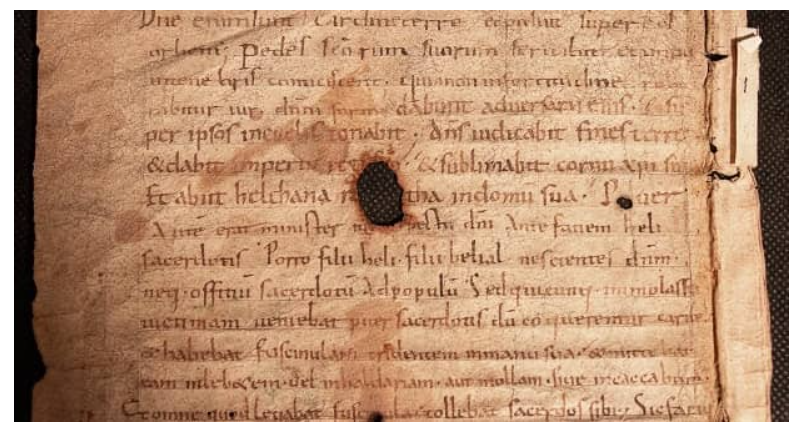 Dñe enim sunt cardines terre & posuit super eos
orbem. Pedes scõrum suorum servabit & impii
in tenebris conticescent. Quia non in fortitudine
rabitur vir. dñm formidabunt adversarii eius.
per ipsos in celis tonabit. Dñs iudicabit fines terre
& dabit imperiũ regi suo. & sublimabit cornu xpi sui
Et abiit helchana ra tha in domũ sua. Puer
Autẽ erat minister in c̃spectu dñi Ante faciem heli
sacerdotis Porro filii heli. filii belial nescientes dñm.
neq; offitiũ sacerdotũ Ad populũ Sed quicunq; immolasset
victimam veniebat puer sacerdotis dũ coquerentur carnes
& habebat fuscinulam tridentem in manu sua. & mittebat
eam in lebetem. vel in caldariam. aut in ollam. sive in caccabum.
Et omne quod levabat fuscinula tollebat sacerdos sibi; Sic fatie